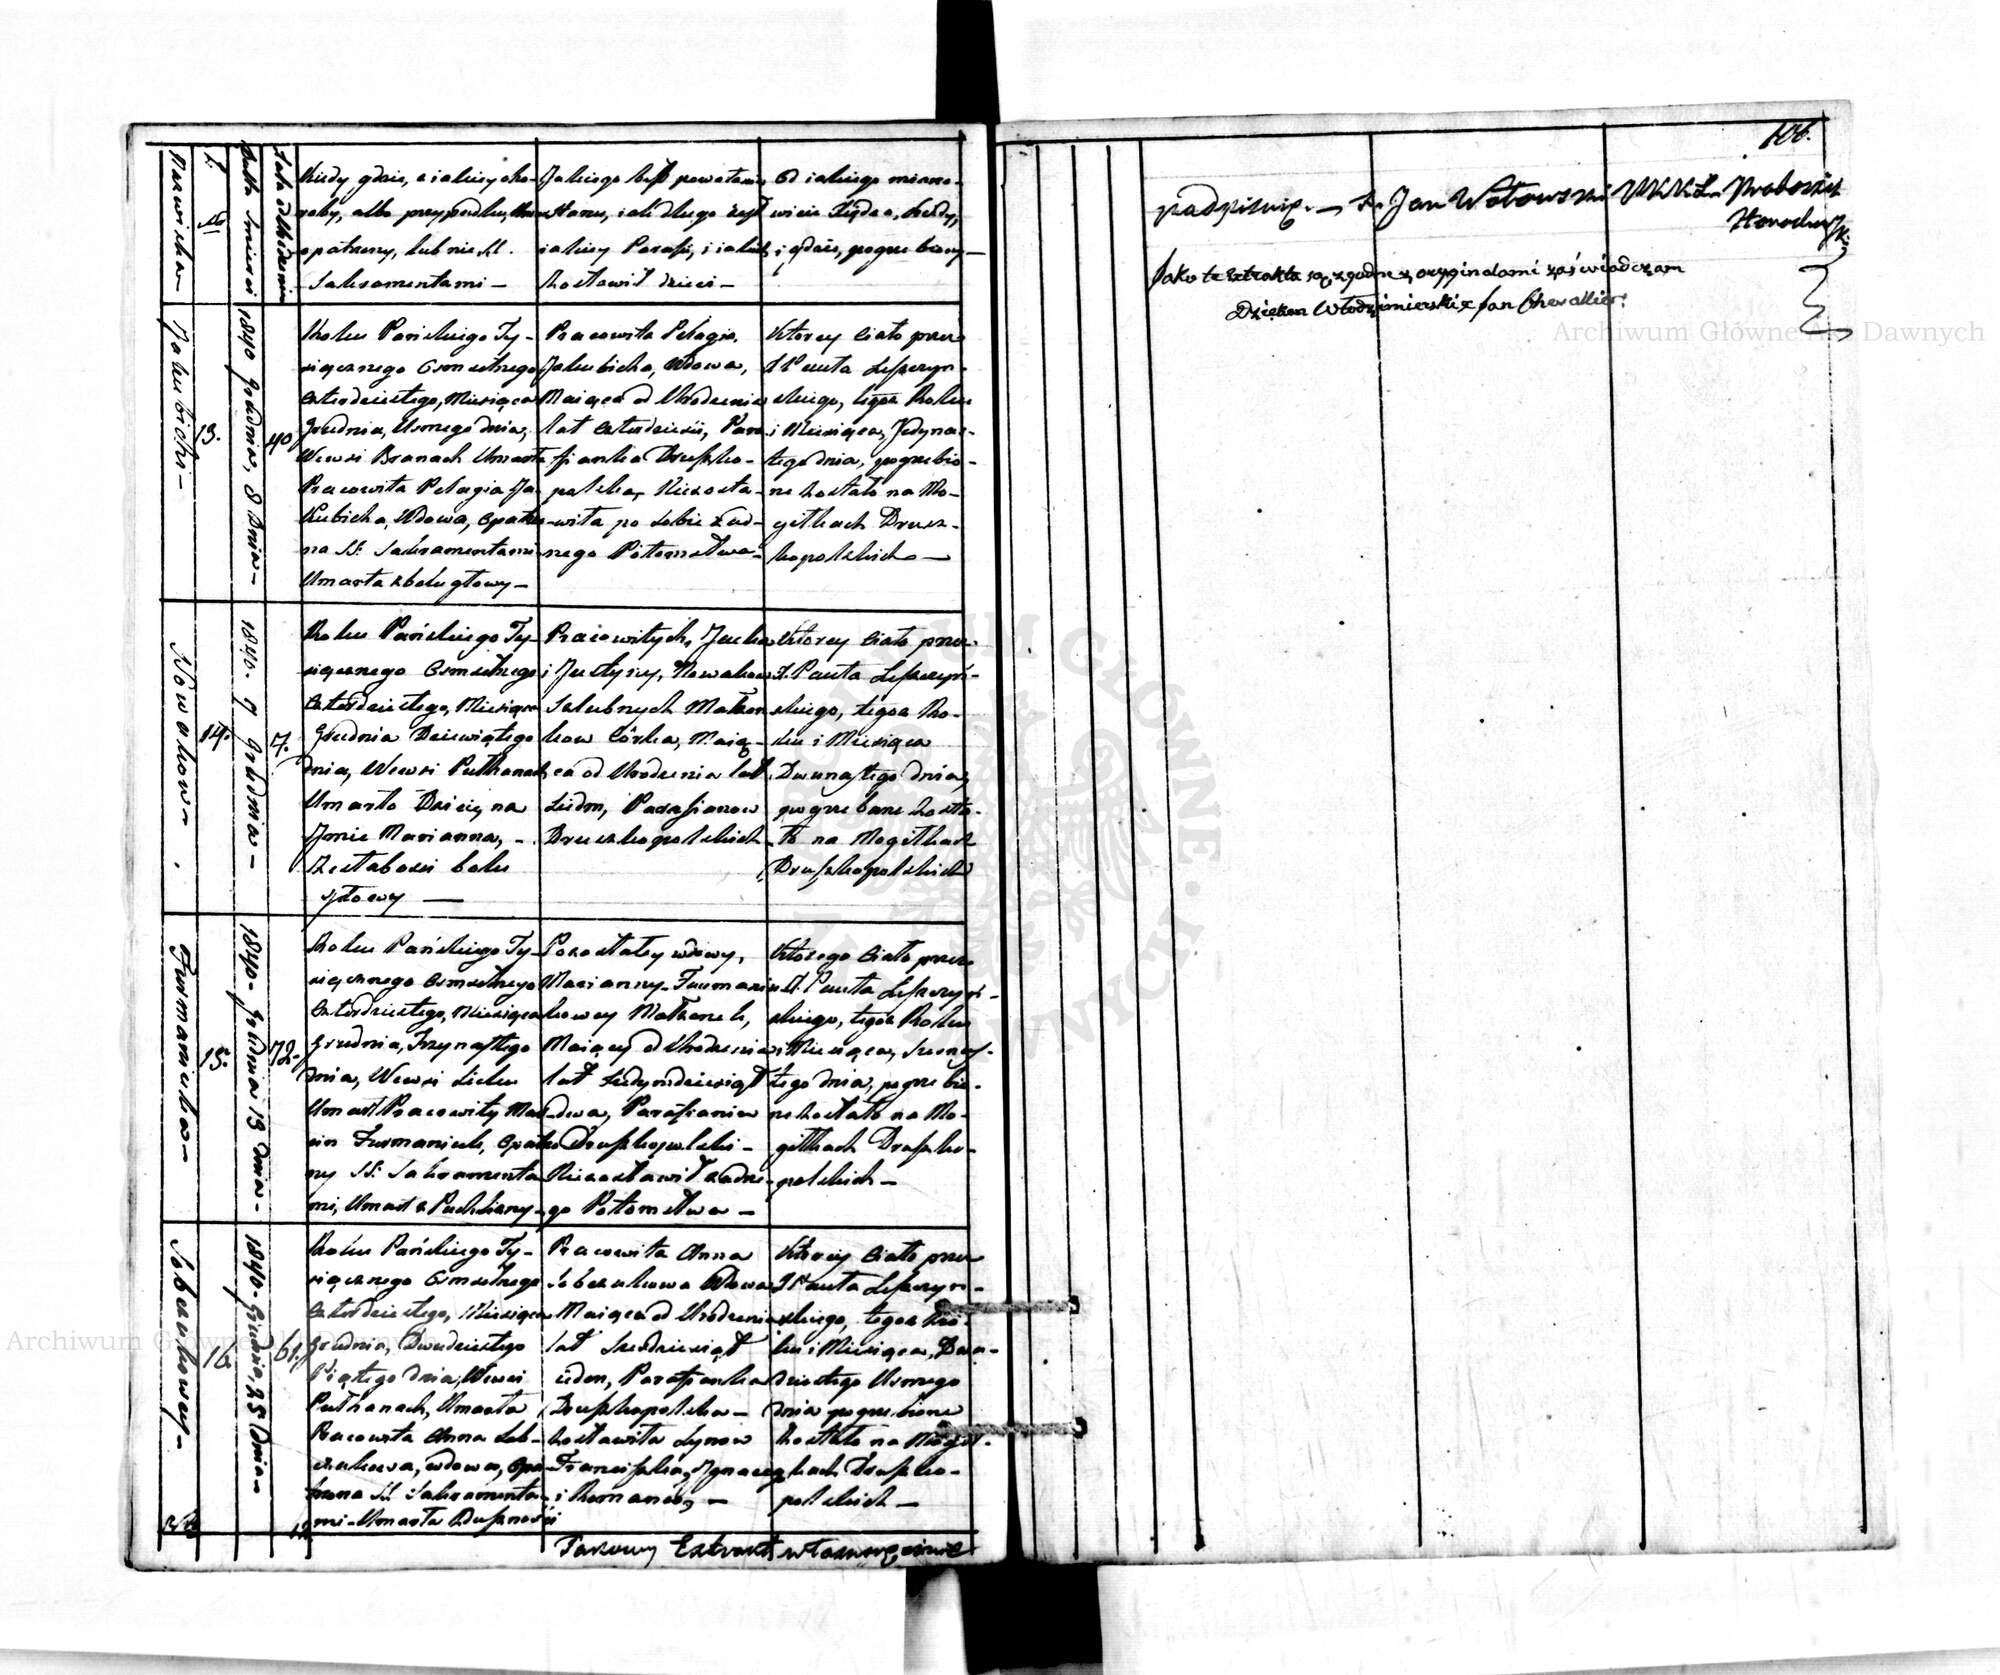 Nazwisko
№
Data Smierci
Lata od Urodzenia
Kiedy gdzie, z iakiey cho-
roby, albo przypadku, Umarł
opatrzony, lub nie SS.
Sakramentami —
Jakiego był powołania
Stanu, iak długo żył
iakiey Parafii, i iakich
Zostawił dzieci —
Od iakiego miano-
wicie Xiędza, kiedy,
i gdzie, pogrzebiony —
Jakubicki —
13.
1840 Grudnia, 8 Dnia —
40
Roku Pańskiego Ty-
siącznego Osmsetnego
Czterdziestego, Miesiąca
Grudnia, Usmego dnia,
We wsi Branach Umarła
Pracowita Pelagia Ja-
kubicka, Wdowa, Opatrzo-
na SS: Sakramentami
Umarła z bolu głowy —
Pracowita Pelagia
Jakubicka, Wdowa,
Maiąca od Urodzenia
lat Czterdzieści, Para-
fianka Druszko-
polska, Niezosta-
wiła po sobie żad-
nego Potomstwa —
Ktorey Ciało przez
X Pawła Leszczyn-
skiego, tegoż Roku
i Miesiąca, Jedynas-
tego dnia, pogrzebio-
ne zostało na Mo-
giłkach Drusz-
kopolskich —
Nowakow —
14.
1840. 9 Grudnia —
7.
Roku Pańskiego Ty-
siącznego Osmsetnego
Czterdziestego, Miesiąca
Grudnia Dziewiątego
dnia, We wsi Pułhanach
Umarło Dziecię na
Jmie Marianna, —
Ze słabosci bolu
głowy —
Pracowitych, Jacka
i Justyny, Nowakow
Szlubnych Małżon-
kow Córka, Maią-
ca od Urodzenia lat
Siedm, Parafianow
Druszkopolskich
Ktorey Ciało przez
X. Pawła Leszczyń-
skiego, tegoż Ro-
ku i Miesiąca
Dwunastego dnia,
pogrzebane zosta-
ło na Mogiłkach
Druszkopolskich
Furmaniukow —
15.
1840. Grudnia 13 dnia —
72.
Roku Pańskiego Ty-
siącznego Osmsetnego
Czterdziestego, Miesiąca
Grudnia, Trzynastego
dnia, We wsi
Umarł Pracowity Mar-
cin Furmaniuk, Opatrzo-
ny SS: Sakramenta-
mi, Umarł z Puchliny —
Pozostałey wdowy,
Marianny Furmaniu-
kowey Małżonek,
Maiący od Urodzenia
lat Siedymdziesiąt
dwa, Parafianin
Druszkopolski —
Niezostawił żadne-
go Potomstwa —
Ktorego Ciało przez
X. Pawła Leszczyń-
skiego, tegoż Roku
i Miesiąca, Szesnas-
tego dnia, pogrzebio-
ne zostało na Mo-
giłkach Druszko-
polskich —
Sobczukowey —
16.
1840. Grudnia, 25 Dnia —
67.
Roku Pańskiego Ty-
siącznego Osmsetnego
Czterdziestego, Miesiąca
Grudnia, Dwudziestego
Piątego dnia, We wsi
Pułhanach, Umarła
Pracowita Anna Sob-
czukowa, wdowa, Opa-
trzona SS. Sakramenta-
mi — Umarła z Duszności
Pracowita Anna
Sobczukowa Wdowa
Maiąca od Urodzenia
lat Szesdziesiąt
siedm, Parafianka
Druszkopolska —
Zostawiła Synow
Franciszka, Jgnacego
i Romana, —
Ktorey Ciało przez
X Pawła Leszczyn-
skiego, tegoż Ro-
ku i Miesiąca, Dwu-
dziestego Usmego
dnia pogrzebione
zostało na Mogił-
kach Druszko-
polskich —
Takowy Extrakt własnoręcznie
106.
podpisuię. — X. Jan Wotowski Proboszcz
Jako te Extrakta są zgodne z oryginałami zaświadczam
Dziekan Włodzimierski X Jan Chevallier.
Archiwum Główne Akt Dawnych
Archiwum Główne Akt Dawnych
ARCHIWUM GŁÓWNE AKT DAWNYCH